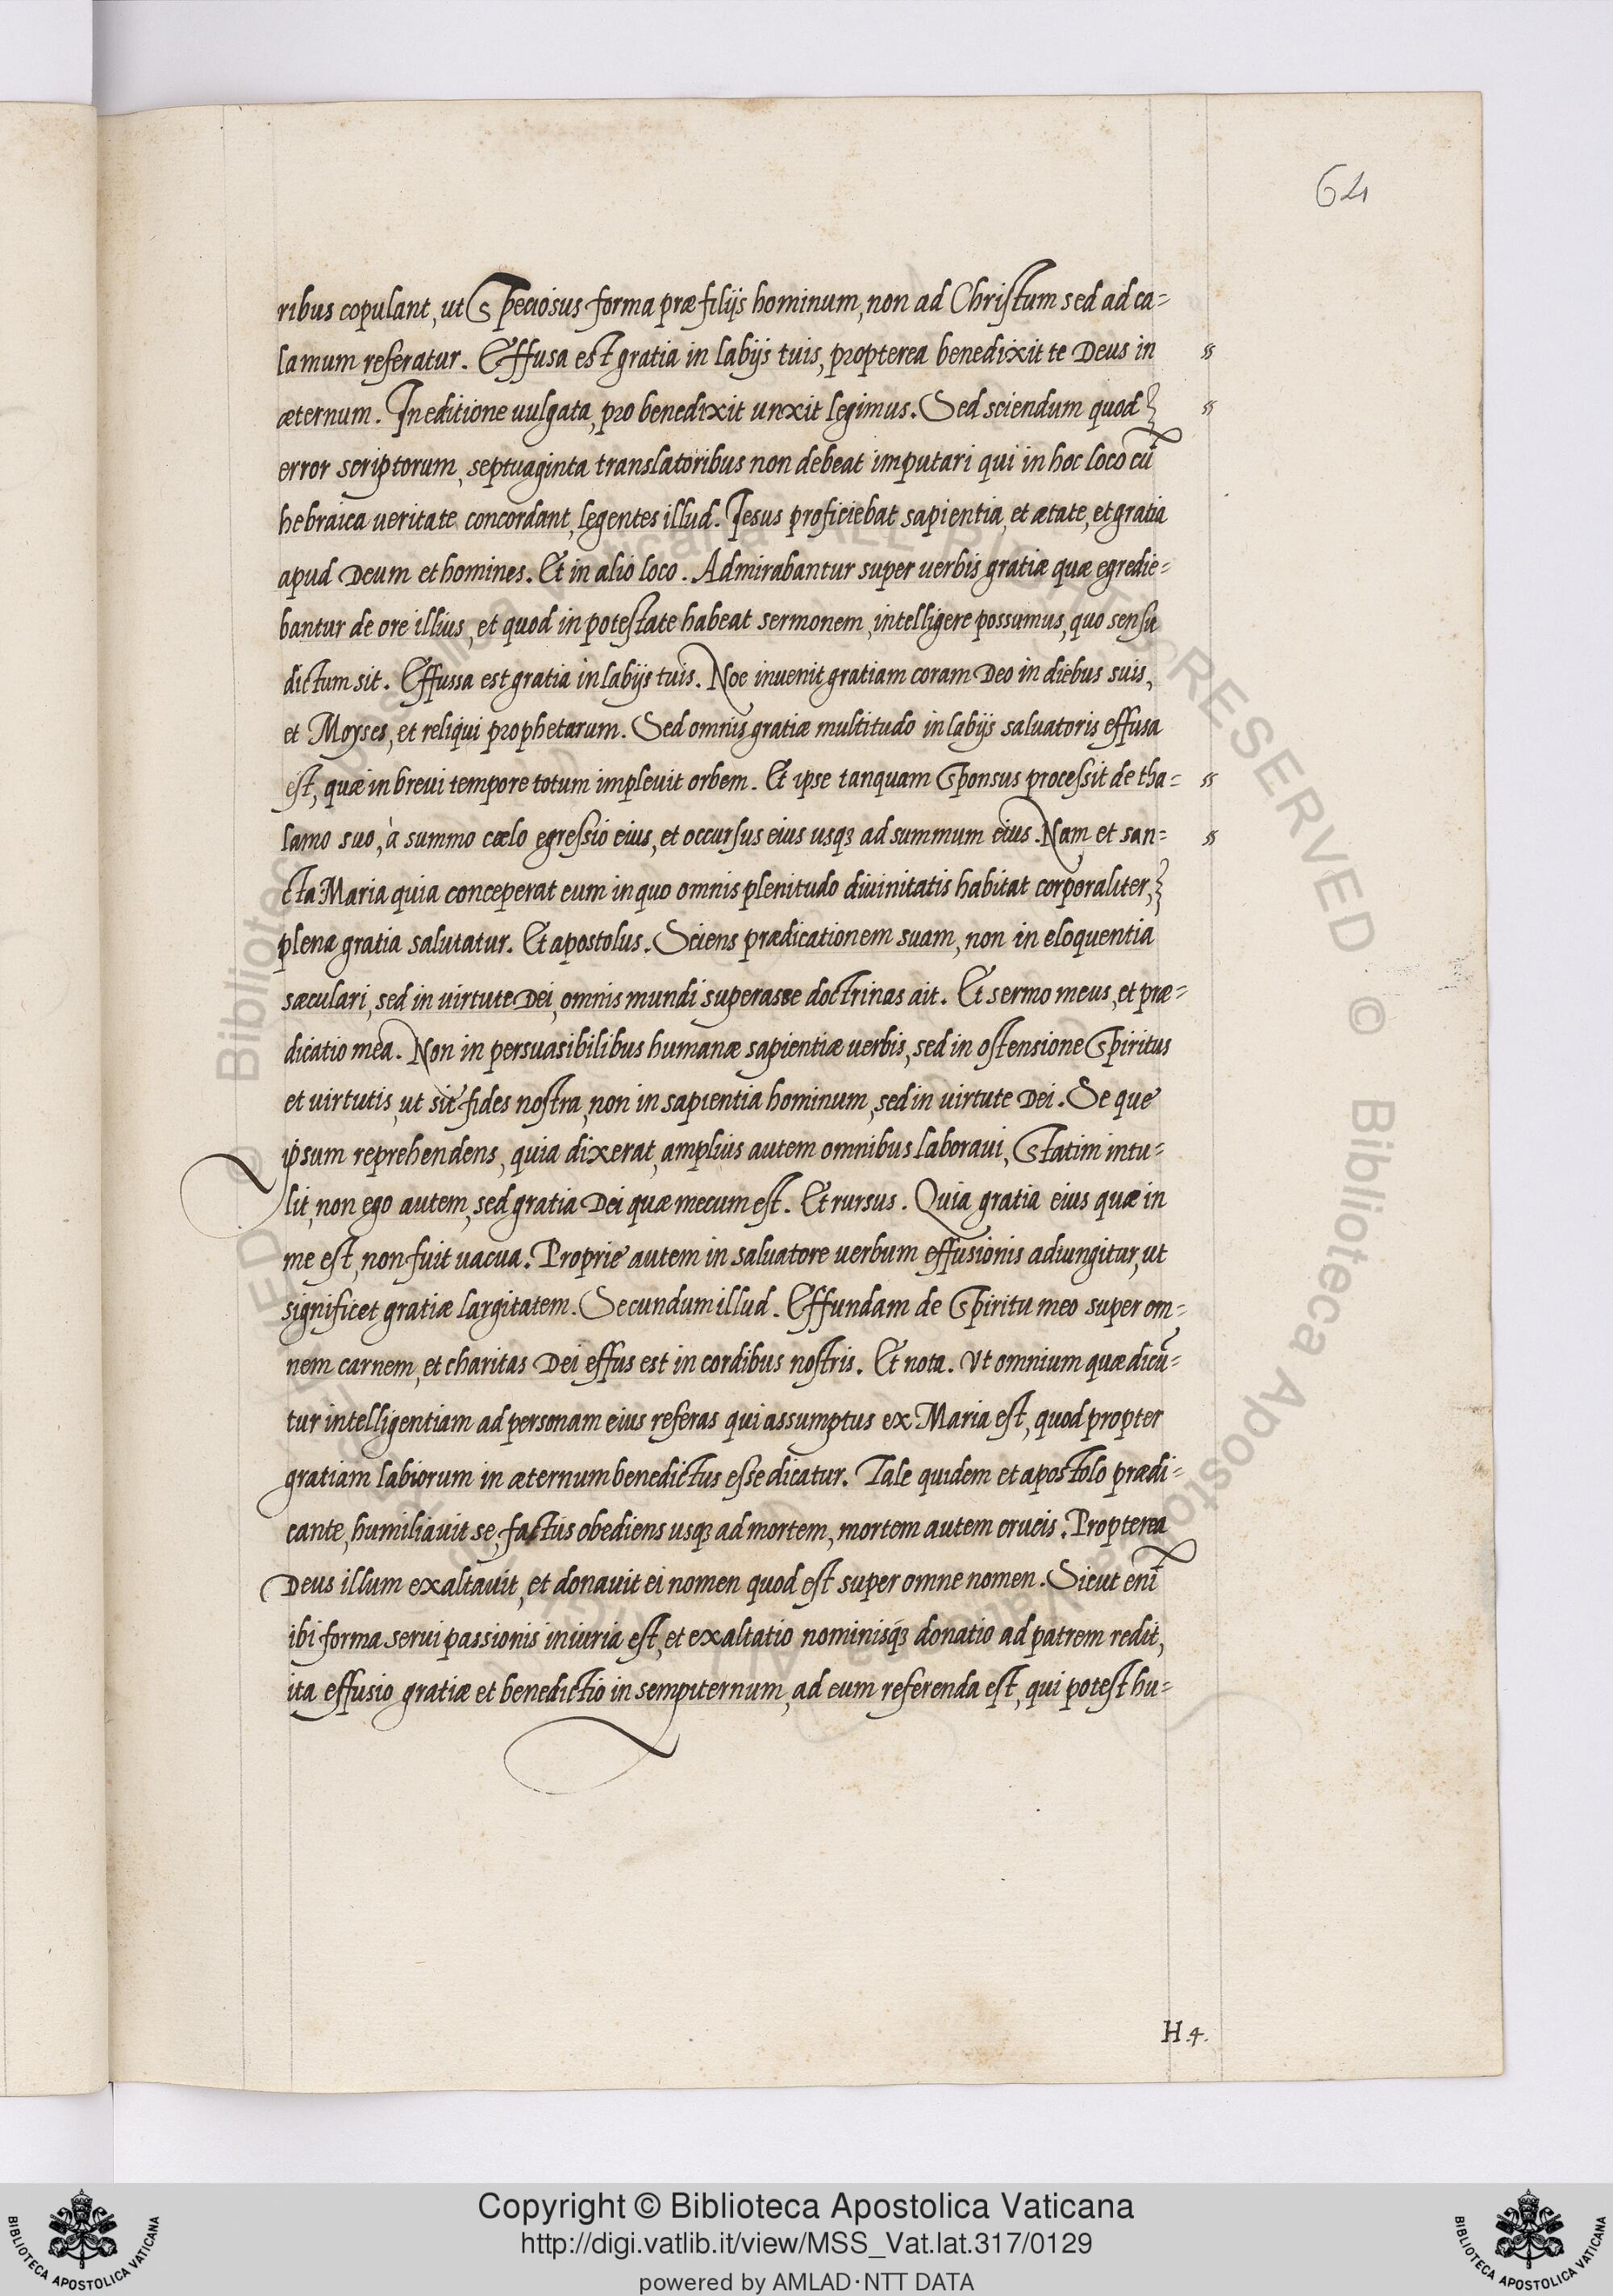 64
ribus copulant, ut Speciosus forma præ filijs hominum, non ad Christum sed ad ca=
lamum referatur. Effusa est gratia in labijs tuis, propterea benedixit te Deus in
æternum. In editione vulgata, pro benedixit unxit legimus. Sed sciendum quod
error scriptorum, septuaginta translatoribus non debeat imputari qui in hoc loco cū
hebraica veritate concordant, legentes illud. Iesus proficiebat sapientia, et ætate, et gratia
apud Deum et homines. Et in alio loco. Admirabantur super verbis gratiæ quæ egredie=
bantur de ore illius, et quod in potestate habeat sermonem, intelligere possumus, quo sensu
dictum sit. Effussa est gratia in labijs tuis. Noe invenit gratiam coram Deo in diebus suis,
et Moyses, et reliqui prophetarum. Sed omnis gratiæ multitudo in labijs salvatoris effusa
est, quæ in brevi tempore totum implevit orbem. Et ipse tanquam Sponsus processit de tha=
lamo suo, à summo cælo egressio eius, et occursus eius usqȝ ad summum eius. Nam et san=
cta Maria quia conceperat eum in quo omnis plenitudo divinitatis habitat corporaliter,
plena gratia salutatur. Et apostolus. Sciens prædicationem suam, non in eloquentia
sæculari, sed in virtute Dei, omnis mundi superasse doctrinas ait. Et sermo meus, et præ=
dicatio mea. Non in persuasibilibus humanæ sapientiæ verbis, sed in ostensione Spiritus
et virtutis, ut sit fides nostra, non in sapientia hominum, sed in virtute Dei. Se que
ipsum reprehendens, quia dixerat, amplius autem omnibus laboravi, Statim intu=
lit, non ego autem, sed gratia Dei quæ mecum est. Et rursus. Quia gratia eius quæ in
me est, non fuit vacua. Proprie autem in salvatore verbum effusionis adiungitur, ut
significet gratiæ largitatem. Secundum illud. Effundam de Spiritu meo super om=
nem carnem, et charitas Dei effus est in cordibus nostris. Et nota. Vt omnium quæ dicū=
tur intelligentiam ad personam eius referas qui assumptus ex Maria est, quod propter
gratiam labiorum in æternum benedictus esse dicatur. Tale quidem et apostolo prædi=
cante, humiliavit se, factus obediens usqȝ ad mortem, mortem autem crucis. Propterea
Deus illum exaltavit, et donavit ei nomen quod est super omne nomen. Sicut enī
ibi forma servi passionis iniuria est, et exaltatio nominisqȝ donatio ad patrem redit,
ita effusio gratiæ et benedictio in sempiternum, ad eum referenda est, qui potest hu=
H.4.
Copyright © Biblioteca Apostolica Vaticana
http://digi.vatlib.it/view/MSS_Vat.lat.317/0129
powered by AMLAD·NTT DATA
BIBLIOTECA APOSTOLICA VATICANA
BIBLIOTECA APOSTOLICA VATICANA